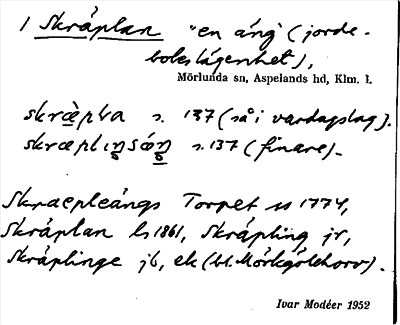 1 Skráplan "en äng" (jorde-
boleslägenhet),
Mörlunda sn, Aspelands hd, Klm. l.
skræ̀pla s. 137 (så i vardagslag).
skræplıŋsáŋ s. 137 (finare).
Skraepleängs Torpet ss 1774,
Skráplan ls 1861, Skräpling jr,
Skräplinge jb, ek (bl.
Ivar Modéer 1952